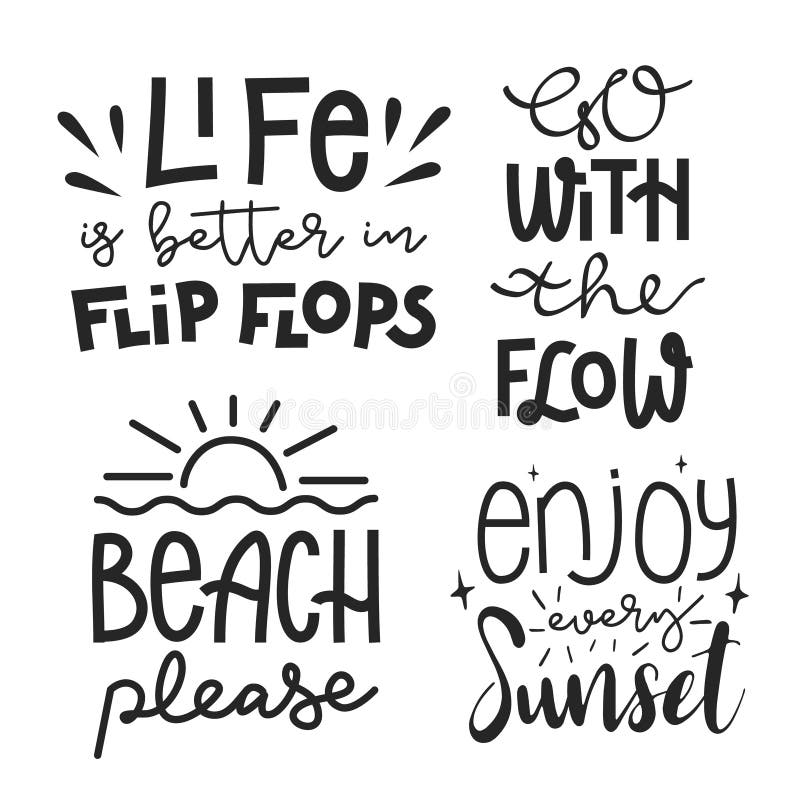 LIFe
is better in
FLiP FLOPS
Go
WiTH
the
FLOW
BeACH
please
enjoy
every
Sunset
dreamstime